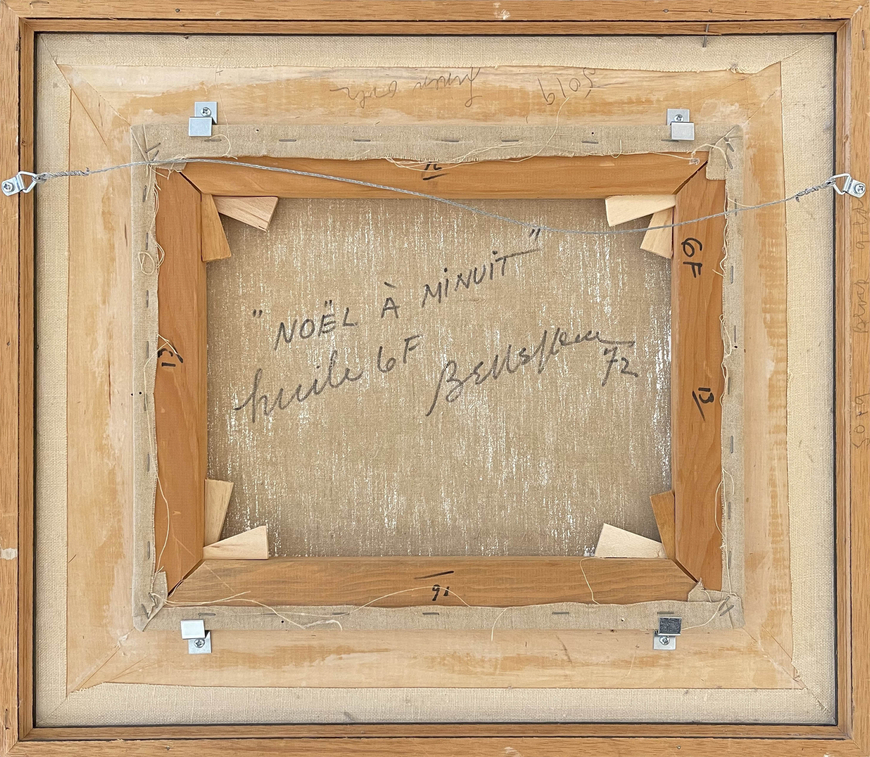 "NOËL À MINUIT"
huile 6F
Bellefleur 72
6F
13
16
5019